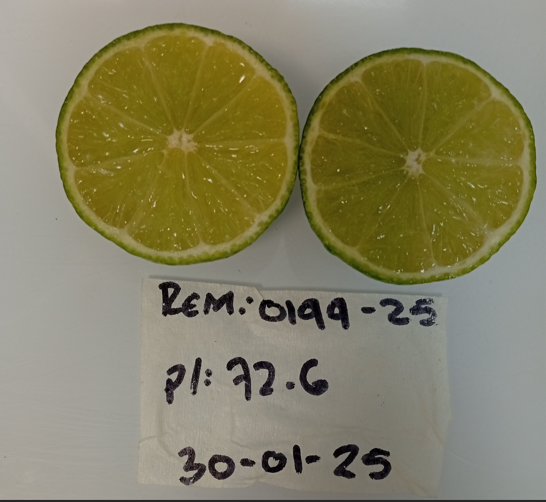 REM.: 0199-25
pl: 72.6
30-01-25